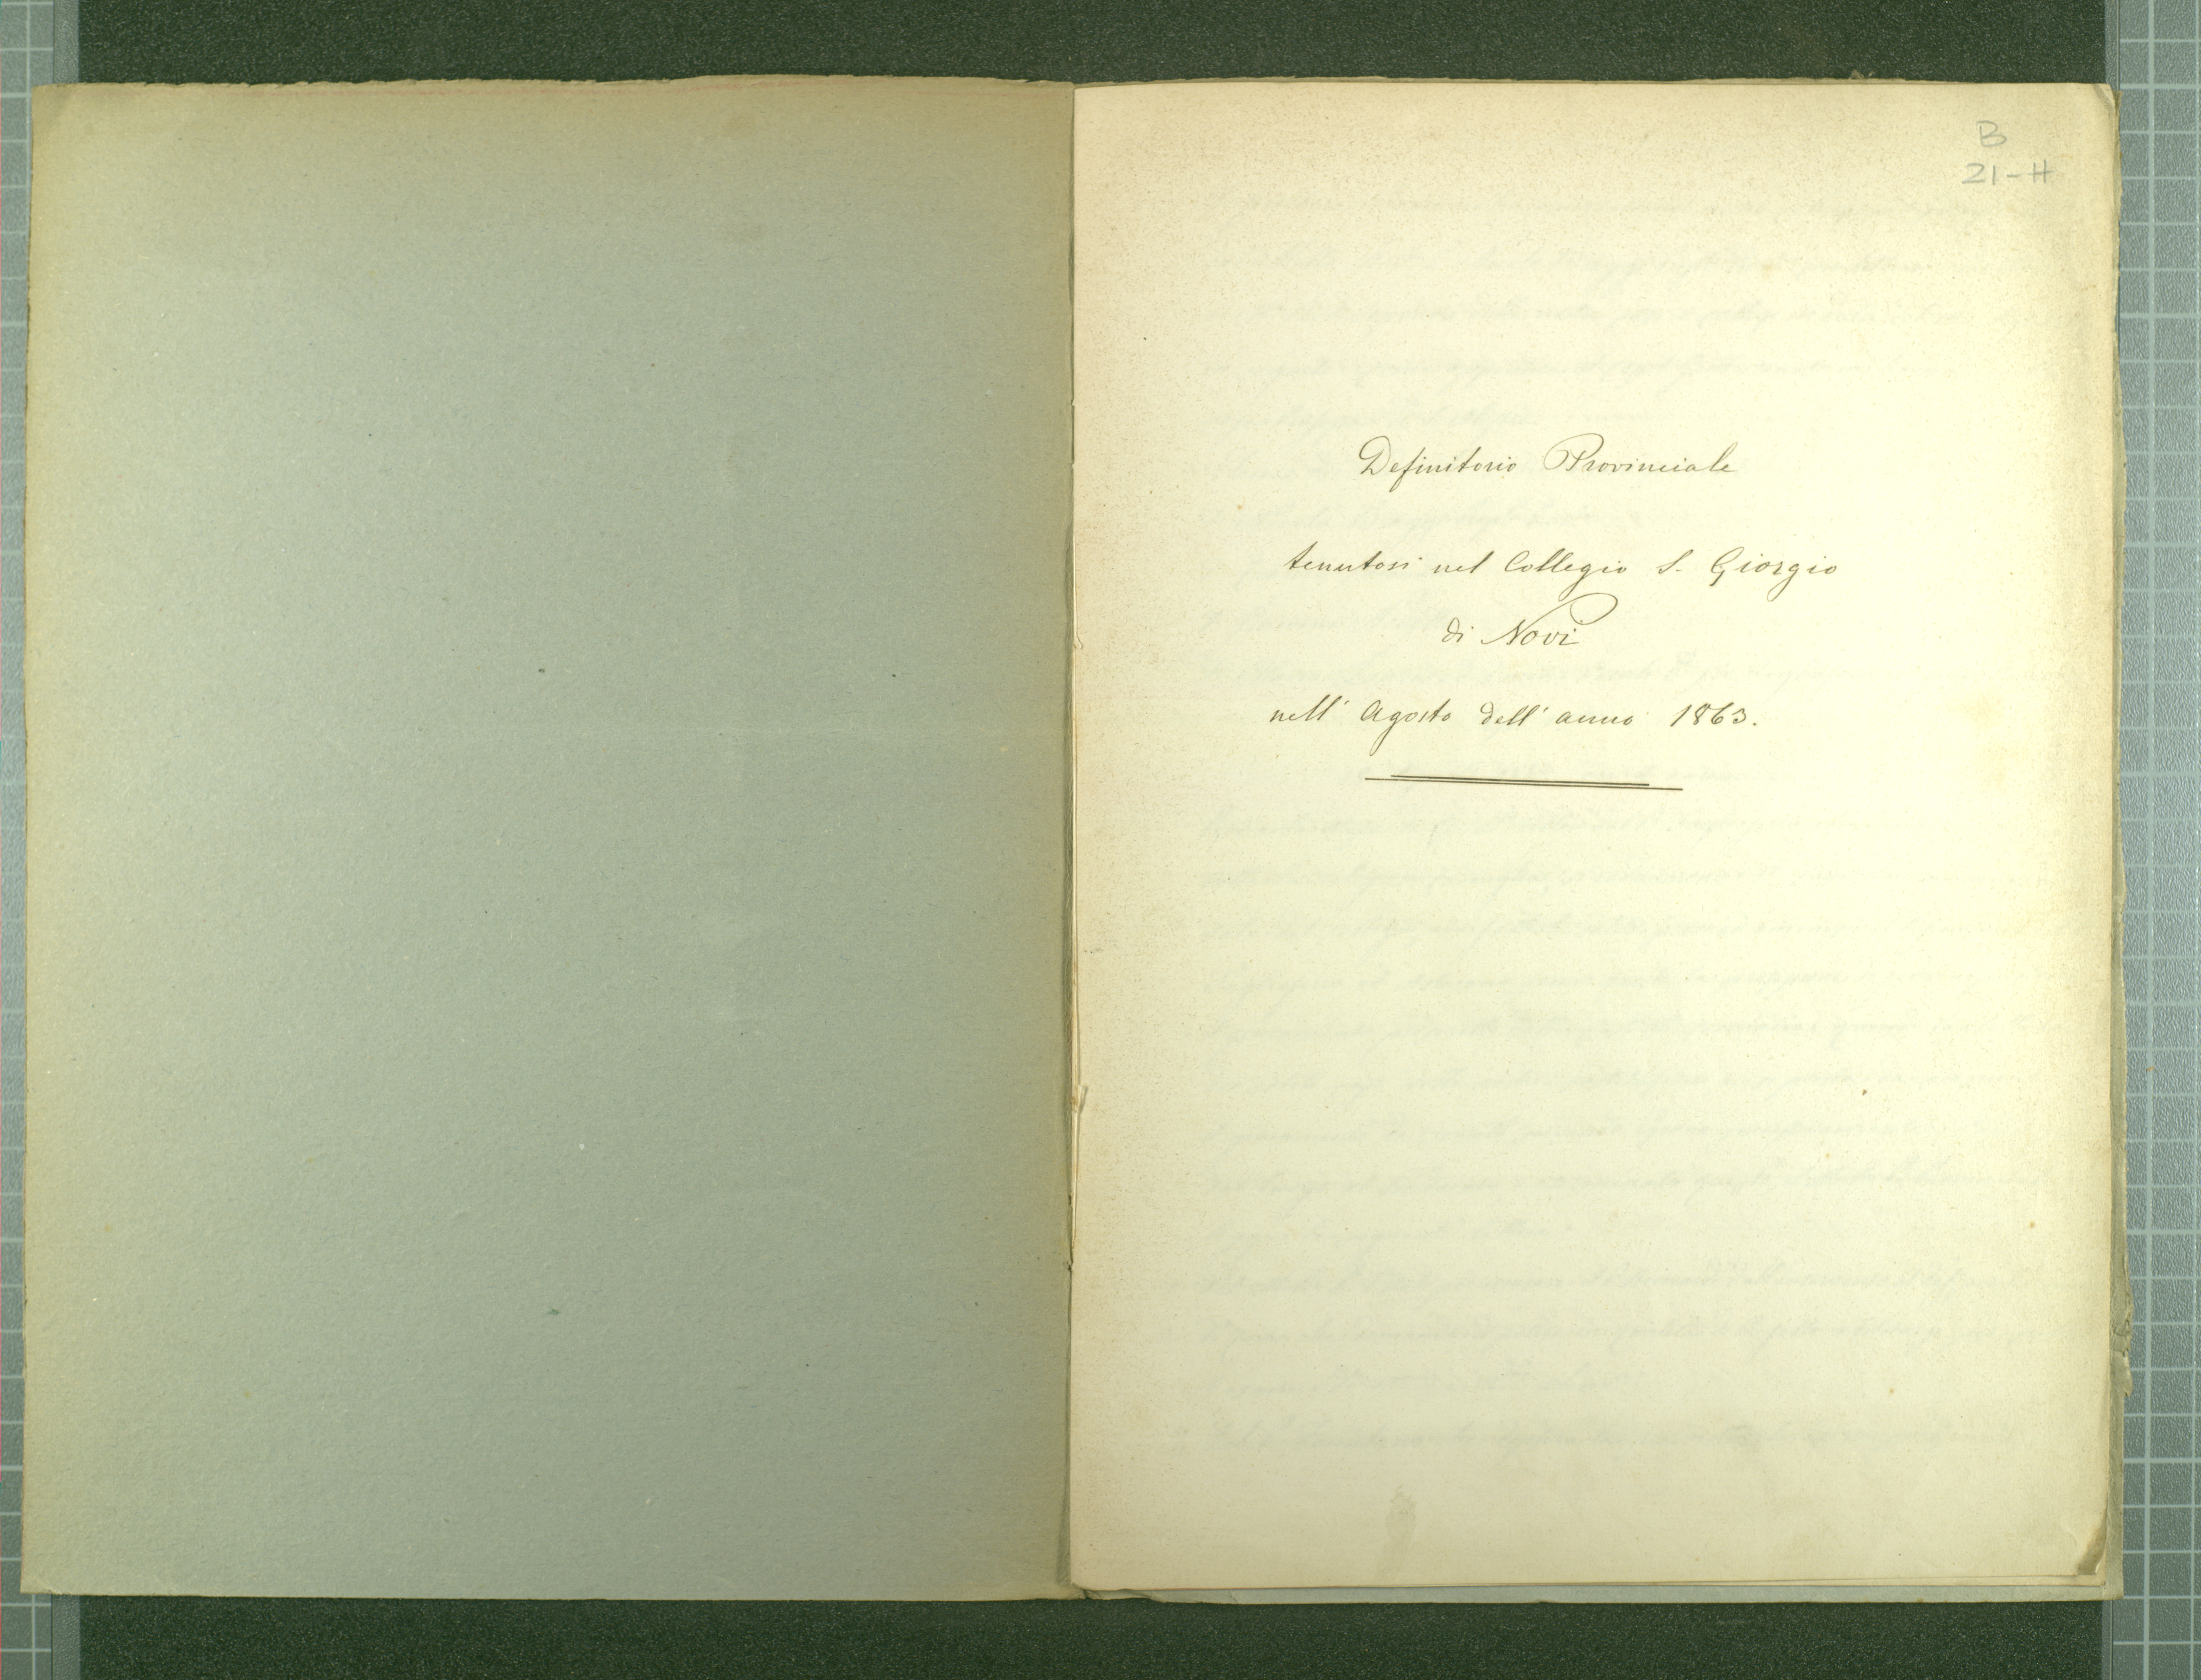 B
21-H
Definitorio Provinciale
tenutosi nel Collegio S. Giorgio
di Novi
nell' Agosto dell' anno 1863.